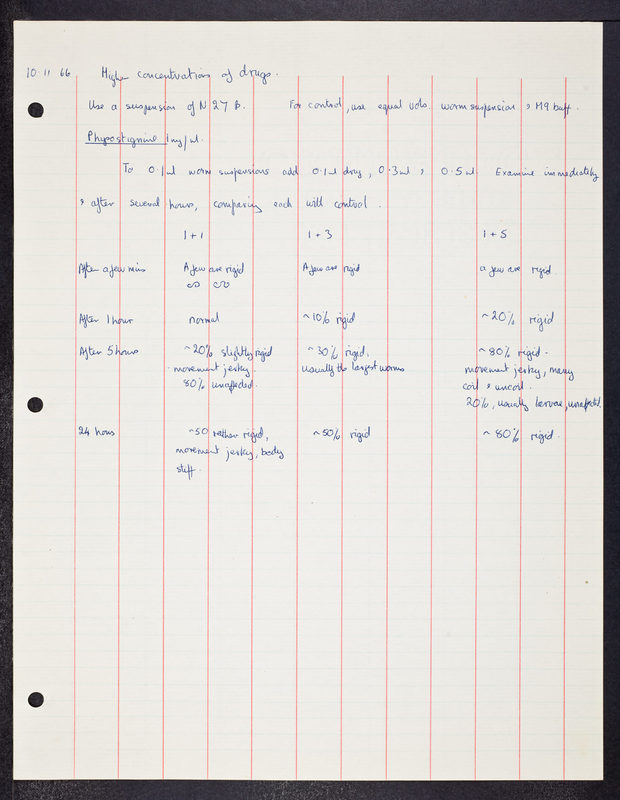 10.11.66 Higher concentrations of drugs.
Use a suspension of N 27 B. For control, use equal vols. worm suspension & M9 buff.
Physostigmine 1mg/ml.
To 0.1ml worm suspensions add 0.1ml drug, 0.3ml & 0.5ml. Examine immediately
& after several hours, comparing each with control.
1+1 1+3 1+5
After a few mins A few are rigid A few are rigid a few are rigid.
After 1 hour normal ~10% rigid ~20% rigid
After 5 hours ~20% slightly rigid ~30% rigid. ~80% rigid.
movement jerky. usually the largest worms movement jerky, many
80% unaffected. coil & uncoil.
20%, usually larvae, unaffected.
24 hours ~50 rather rigid, ~50% rigid ~80% rigid.
movement jerky, body
stiff.